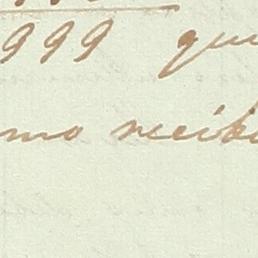 999 que
mo recib